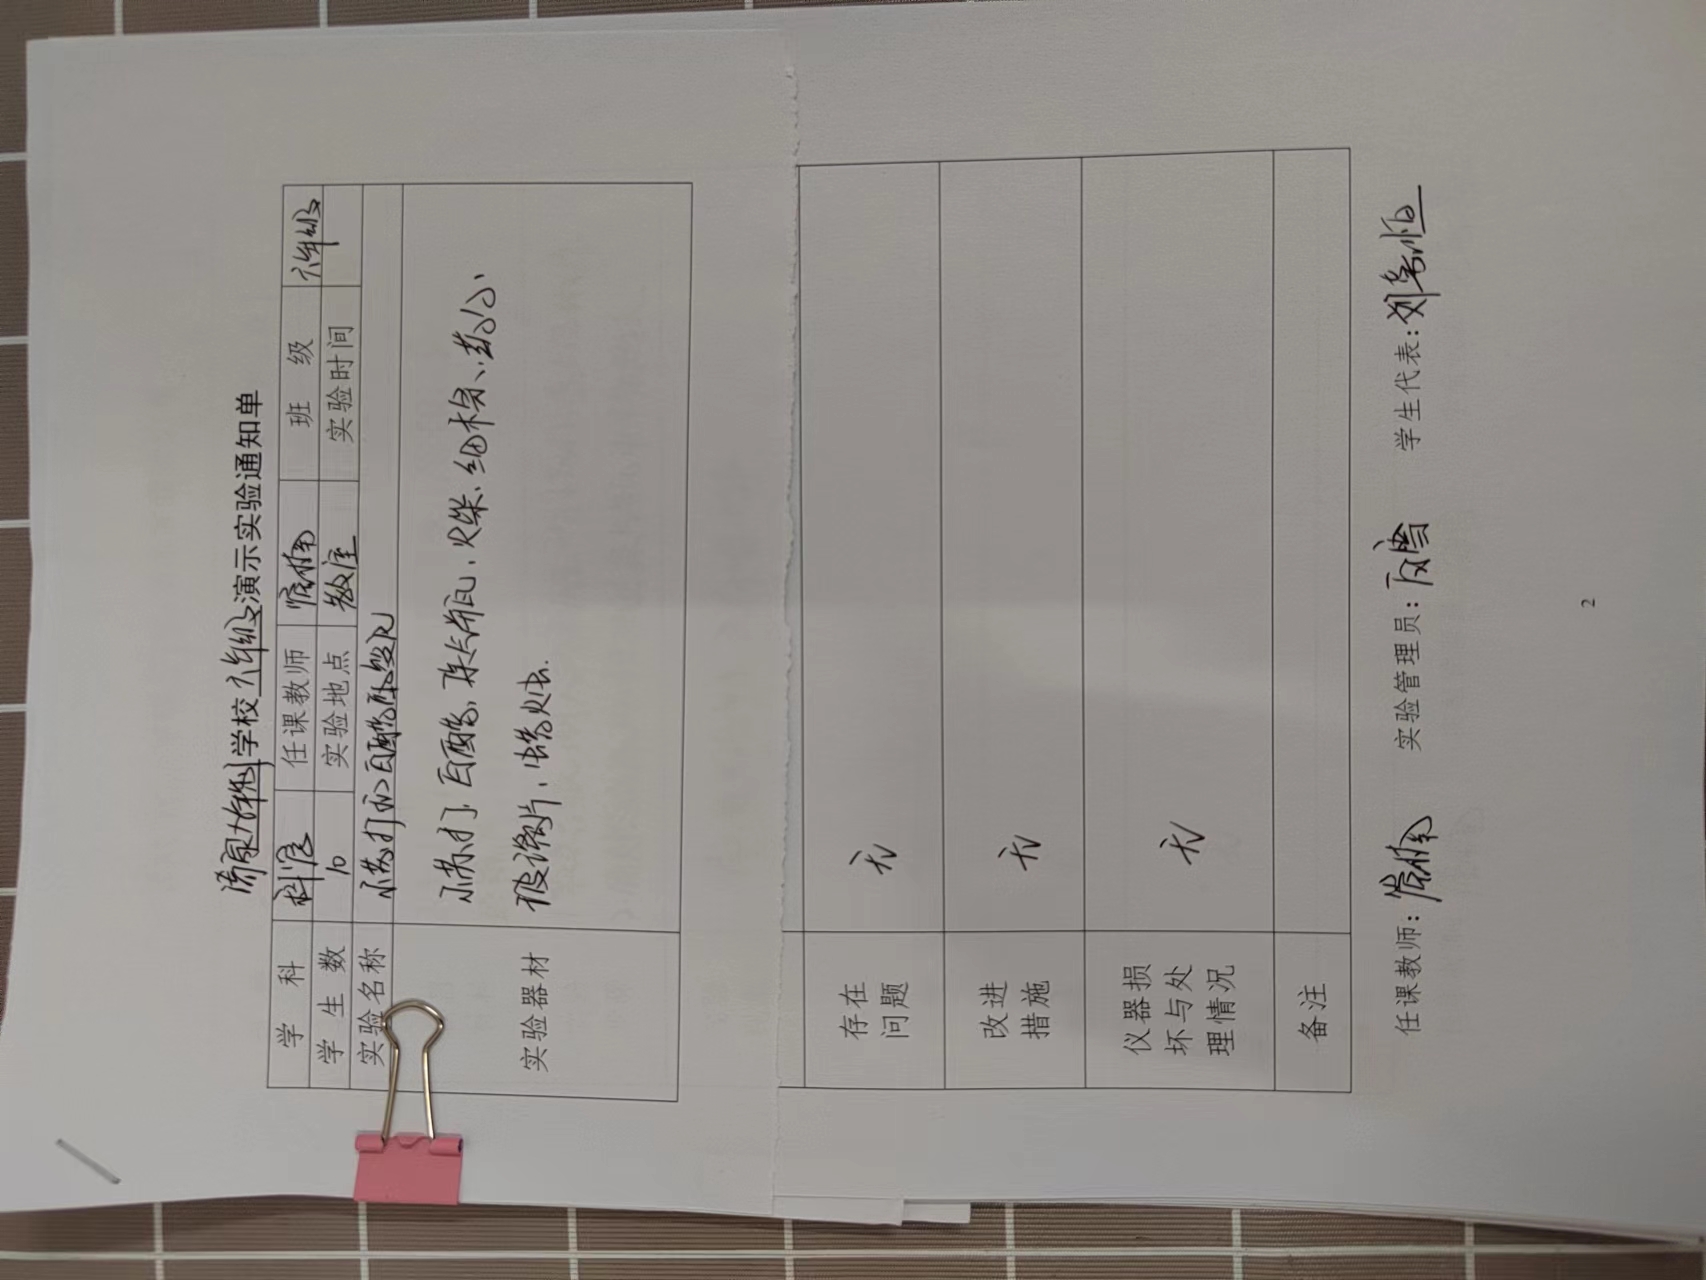 学校六年级演示实验通知单
学 科 科学 任课教师 班 级 六年级
学 生 数 10 实验地点 教室 实验时间
实验名称 小苏打和白醋的变化
实验器材 小苏打、白醋、玻璃瓶、火柴、细木条、
玻璃片、蜡烛。
存在
问题 无
改进
措施 无
仪器损
坏与处
理情况 无
备注
任课教师: 实验管理员: 学生代表:
2